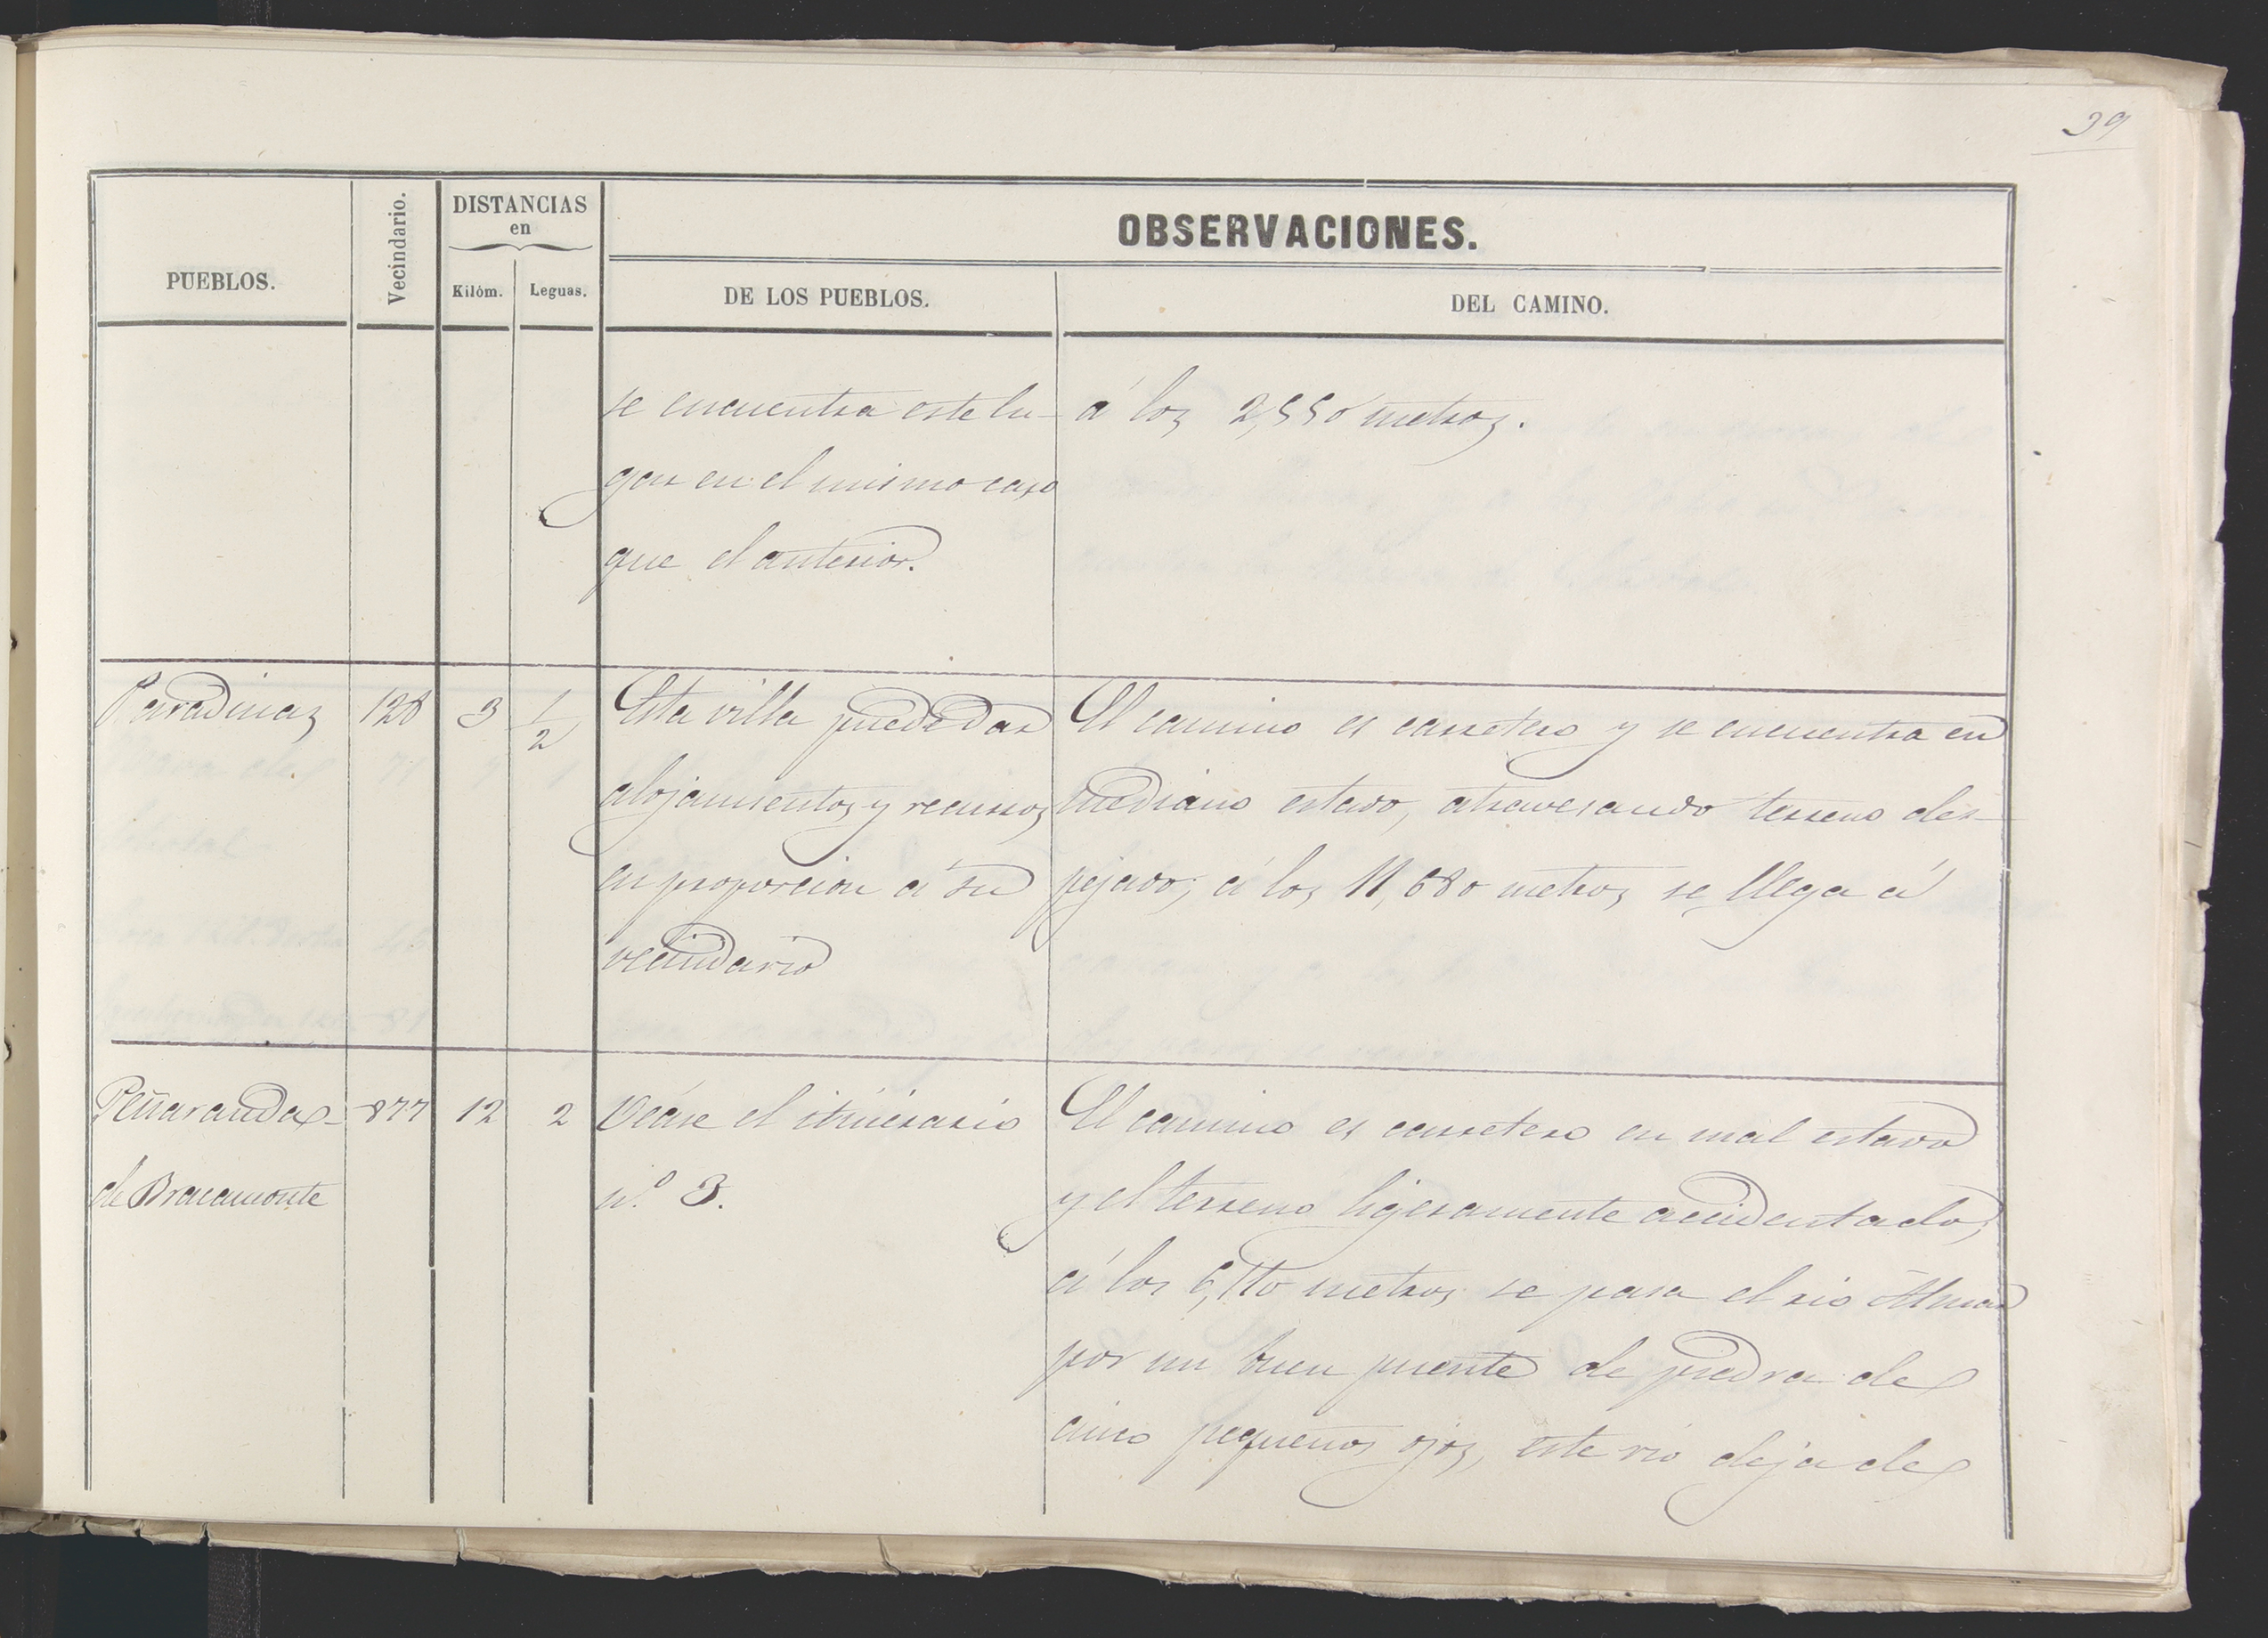 39
PUEBLOS.
Vecindario.
DISTANCIAS
en
Kilóm.
Leguas.
OBSERVACIONES.
DE LOS PUEBLOS.
DEL CAMINO.
se encuentra este lu-
gar en el mismo caso
que el anterior.
á los 2,550 metros.
Paradinas
128
3
1/2
Esta villa puede dar
alojamientos y recursos
en proporcion á su
vecindario
El camino es carretero y se encuentra en
mediano estado, atravesando terreno des-
pejado; á los 11,680 metros se llega á
Peñaranda-
de Bracamonte
877
12
2
Véase el itinerario
n.º 3.
El camino es carretero en mal estado
y el terreno ligeramente accidentado,
á los 6,110 metros se pasa el rio Almar
por un buen puente de piedra de
cinco pequeños ojos, este rio deja de